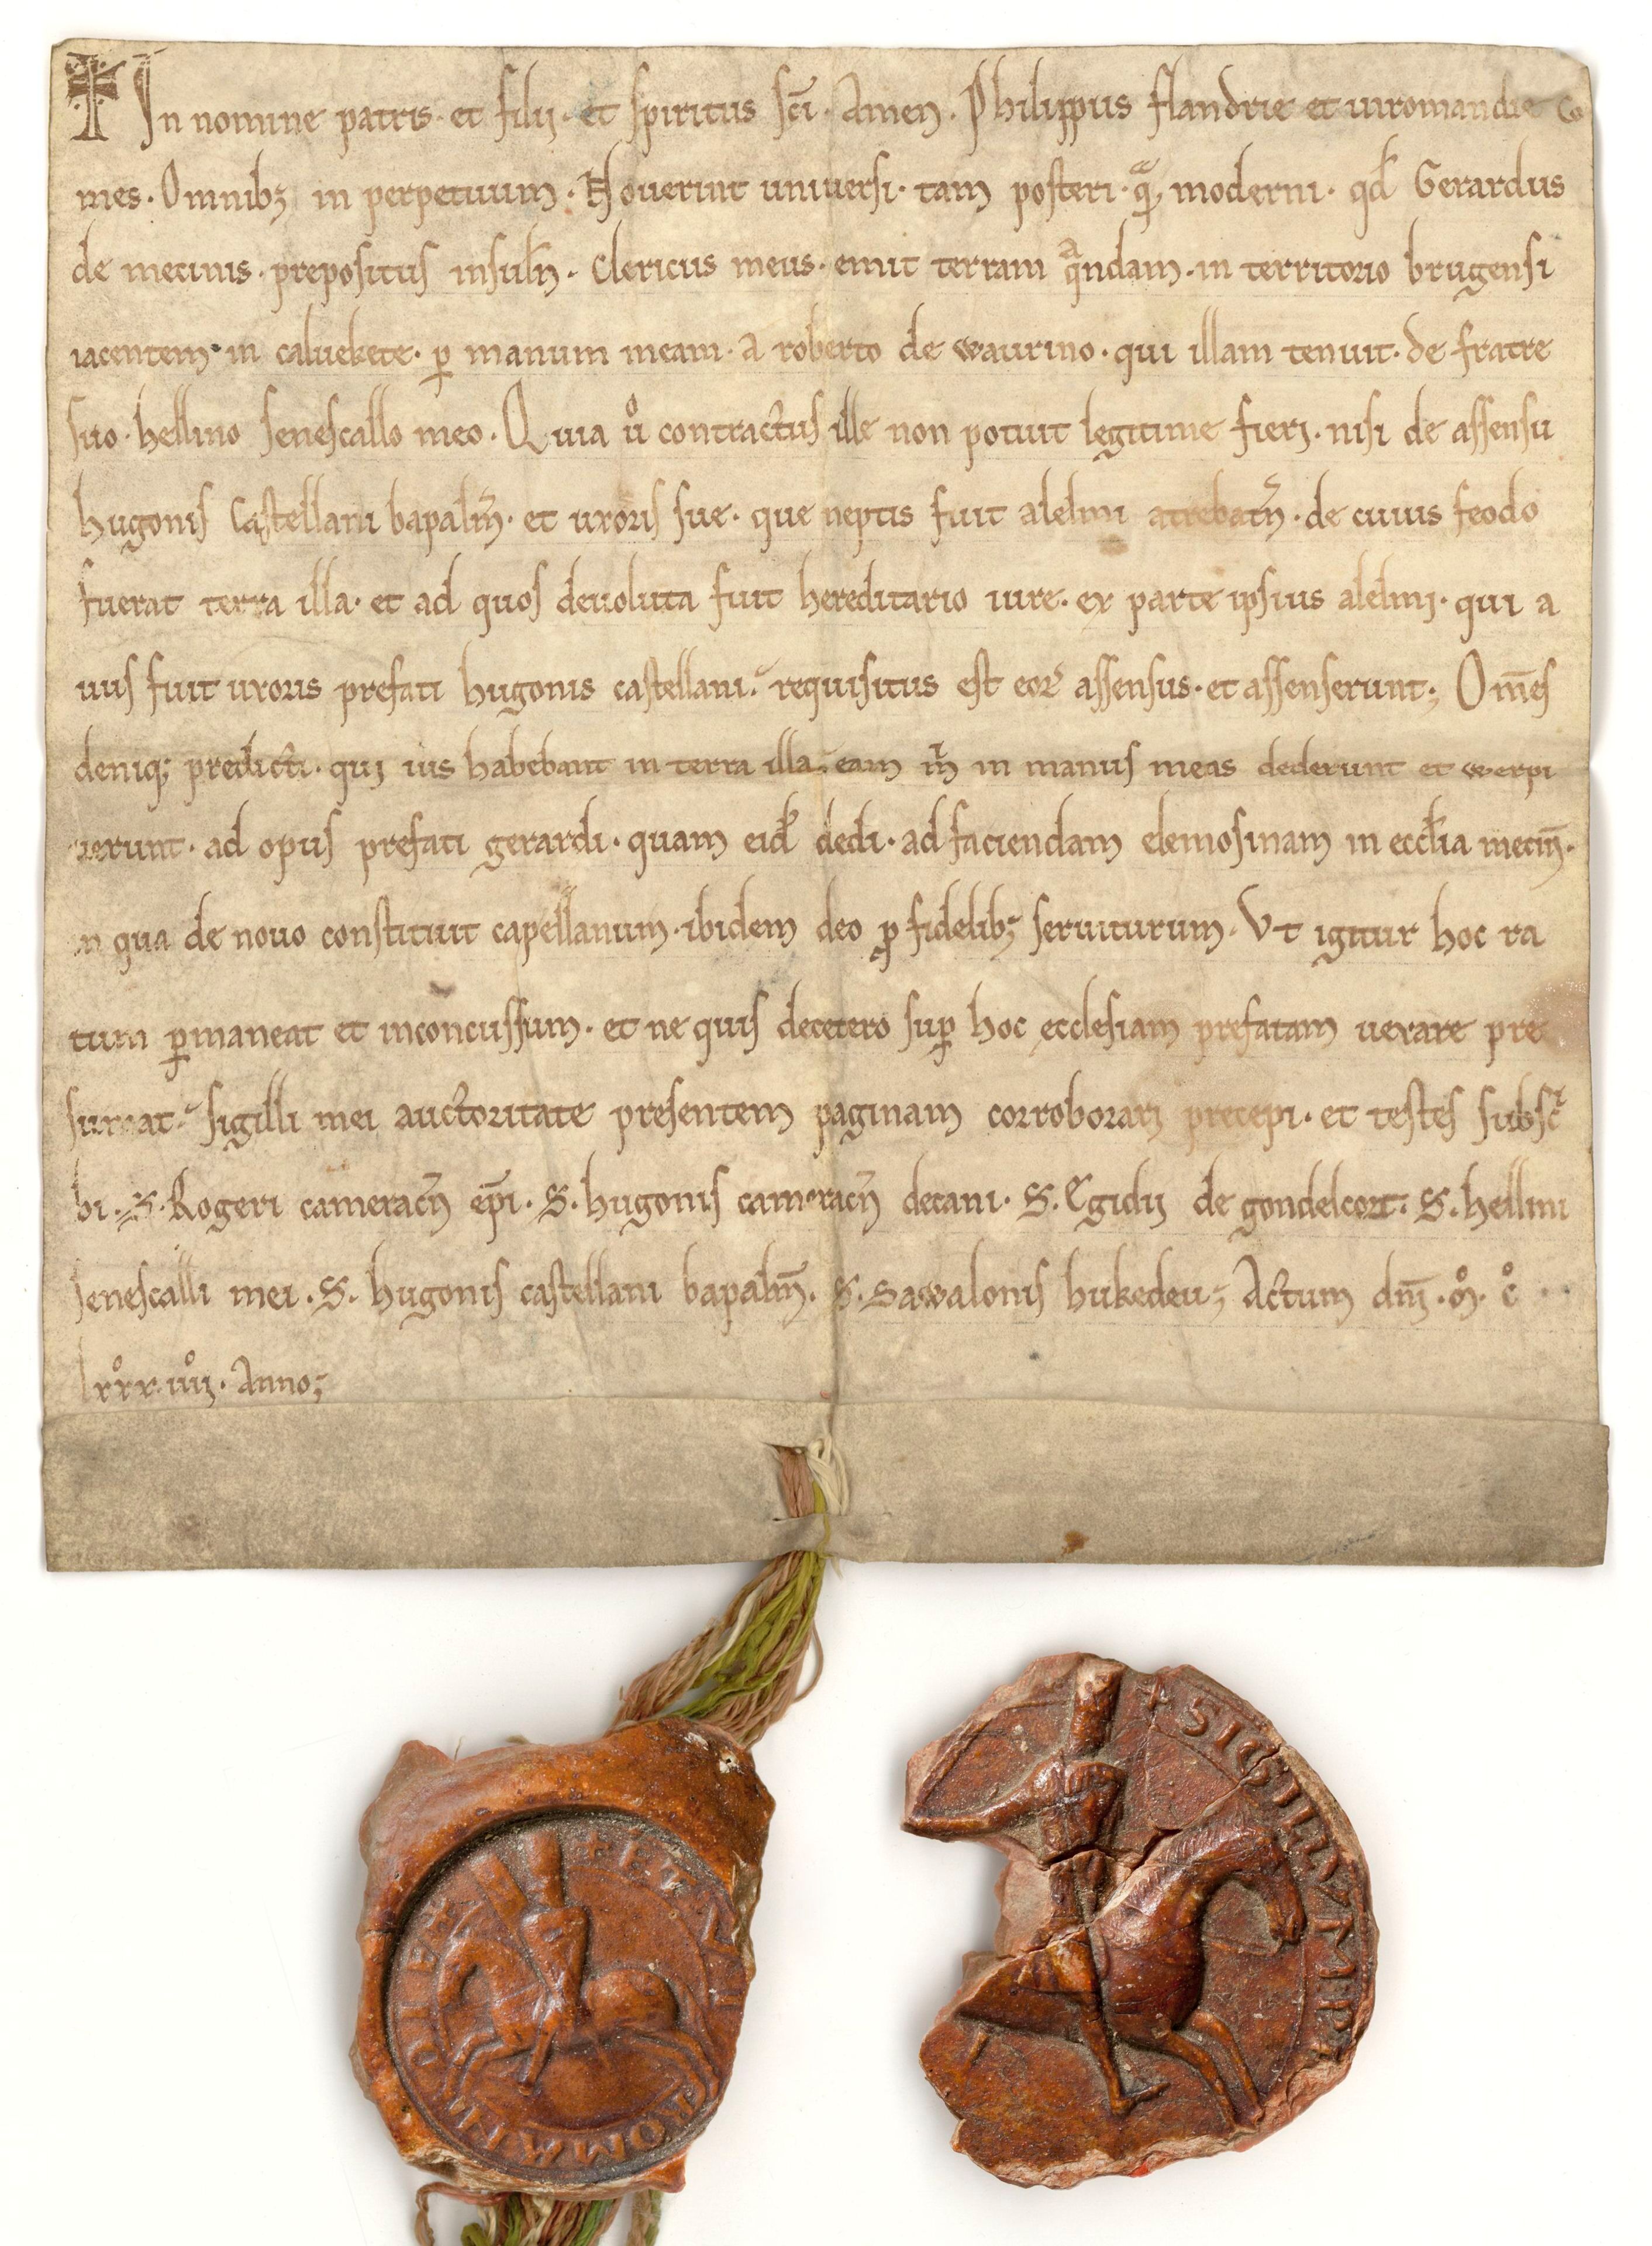 In nomine patris · et filij · et spiritus sc̄i · Amen . Philippus flandrie et uiromandie Co
mes · Omnibꝫ in perpetuum · Nouerint uniuersi · tam posteri · qᵃ̄ moderni · qđ Gerardus
de mecinis · prepositus insuln̄ . Clericus meus · emit terram qᵃndam · in territorio brugensi
iacentem · in caluekete · ꝑ manum meam · a roberto de waurino · qui illam tenuit · de fratre
suo · hellino senescallo meo . Quia uͦ contractus ille non potuit legitime fieri · nisi de assensu
hugonis Castellani bapalm̄ · et uxoris sue · que neptis fuit alelmi atrebatn̄ · de cuius feodo
fuerat terra illa · et ad quos deuoluta fuit hereditario iure · ex parte ipsius alelmi · qui a
uus fuit uxoris prefati hugonis castellani · requisitus est eoꝝ assensus · et assenserunt ; Om̄es
deniqꝫ predicti · qui ius habebant in terra illa · eam m̄ in manus meas dederunt et werpi
uerunt · ad opus prefati gerardi · quam eid̄ dedi · ad faciendam elemosinam in eccl̄ia mecin̄ ·
in qua de nouo constituit capellanum · ibidem deo ꝓ fidelibꝫ seruiturum · Vt igitur hoc ra
tum ꝑmaneat et inconcussum · et ne quis decetero suꝑ hoc ecclesiam prefatam uexare pre
sumat · sigilli mei auctoritate presentem paginam corroborari precepi · et testes subscⁱ
bi . S . Rogeri cameracn̄ ep̄i · S . hugonis cameracn̄ decani · S . Egidij de gondelcort · S . hellini
senescalli mei . S . hugonis castellani bapalm̄ . S . Sawalonis hukedeu ; Actum dn̄i · mͦ · cͦ ·
lxxͦx · iiijͦ · Anno ;
+ ET VI ROMANDIE
+ SIGILLVM PH